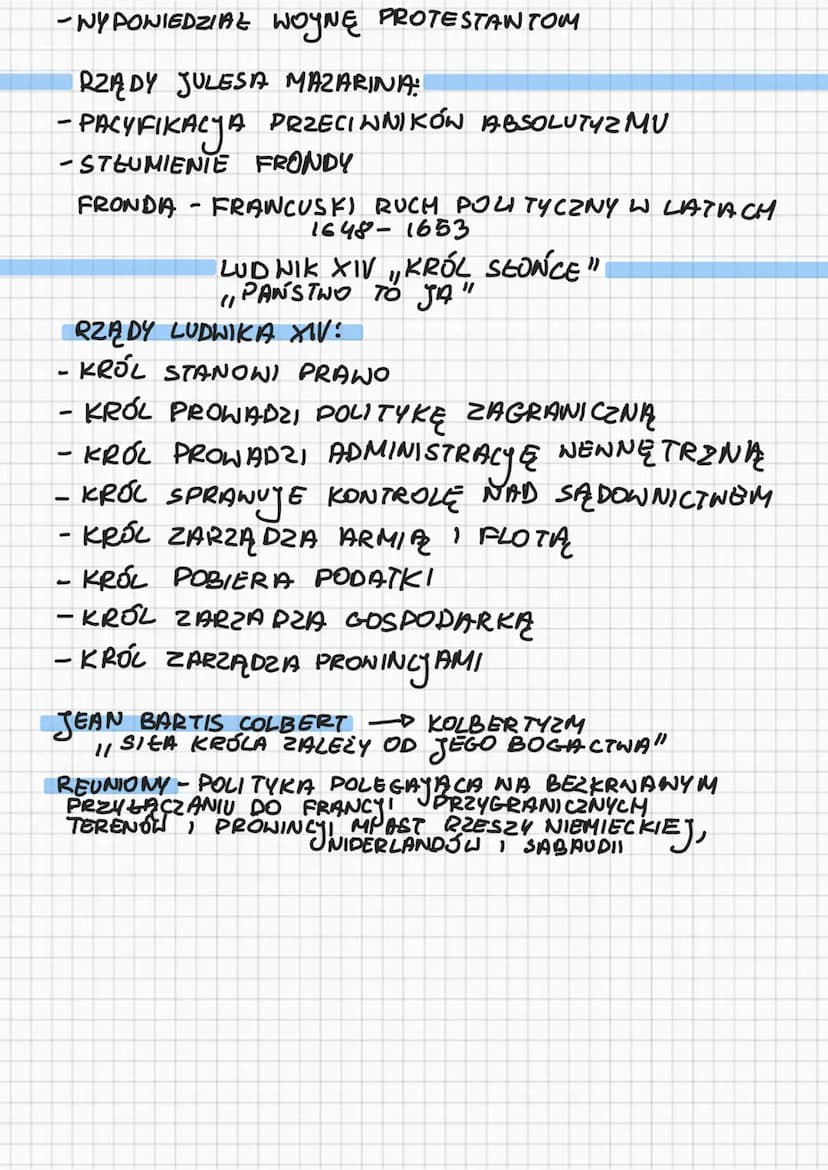 - WYPOWIEDZIAŁ WOJNĘ PROTESTANTOM
RZĄDY JULESA MAZARINA:
- PACYFIKACJA PRZECIWNIKÓW ABSOLUTYZMU
- STŁUMIENIE FRONDY
FRONDA - FRANCUSKI RUCH POLITYCZNY W LATACH
1648 - 1653
LUDWIK XIV „KRÓL SŁOŃCE"
„PAŃSTWO TO JA"
RZĄDY LUDWIKA XIV:
- KRÓL STANOWI PRAWO
- KRÓL PROWADZI POLITYKĘ ZAGRANICZNĄ
- KRÓL PROWADZI ADMINISTRACJĘ WEWNĘTRZNĄ
- KRÓL SPRAWUJE KONTROLĘ NAD SĄDOWNICTWEM
- KRÓL ZARZĄDZA ARMIĄ I FLOTĄ
- KRÓL POBIERA PODATKI
- KRÓL ZARZADZA GOSPODARKĄ
- KRÓL ZARZĄDZA PROWINCJAMI
JEAN BARTIS COLBERT → KOLBERTYZM
„SIŁA KRÓLA ZALEŻY OD JEGO BOGACTWA"
REUNIONY - POLITYKA POLEGAJĄCA NA BEZKRWAWYM
PRZYŁĄCZANIU DO FRANCJI PRZYGRANICZNYCH
TERENÓW I PROWINCJI MIAST RZESZY NIEMIECKIEJ,
NIDERLANDÓW I SABAUDII